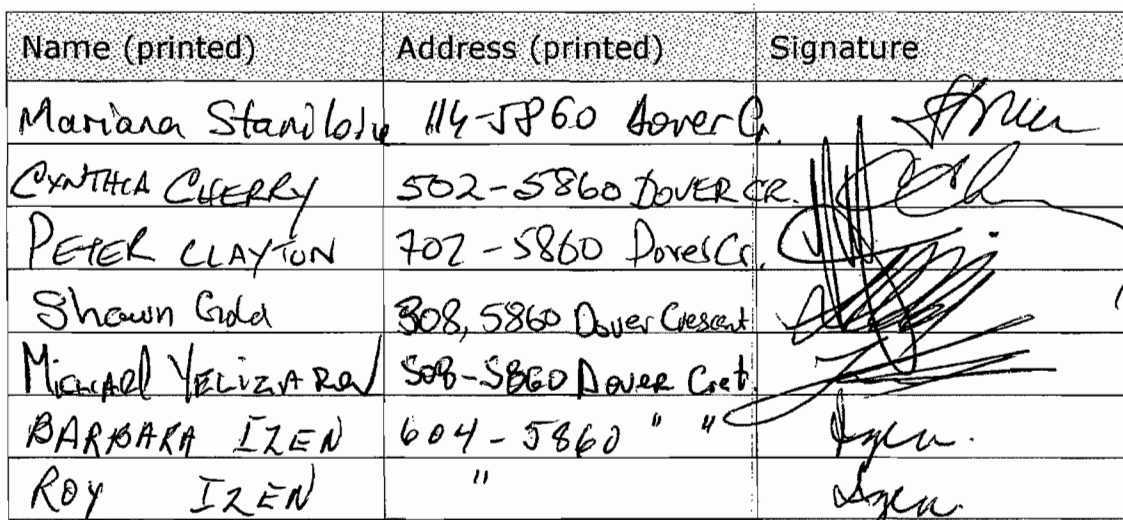 Name (printed) Address (printed) Signature
Mariana 114-5860 Dover Cr.
CYNTHIA CHERRY 502-5860 DOVER CR.
PETER CLAYTON 702-5860 Dover Cr.
Shawn Gold 308, 5860 Dover Crescent
MICHAEL YELIZAROV 508-5860 DOVER Cret.
BARBARA IZEN 604-5860 " " Izen.
ROY IZEN " Izen.